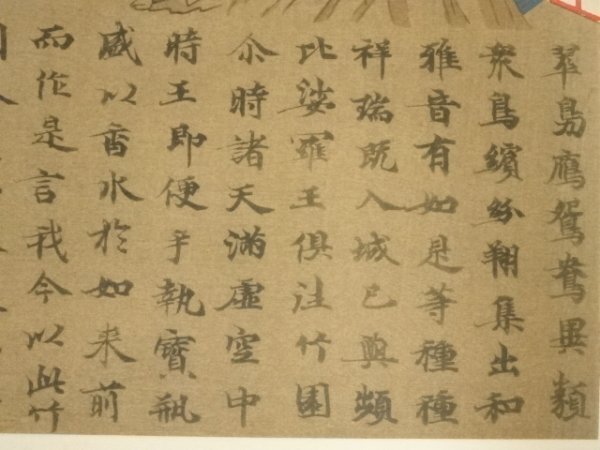 翠鳥鷹鴛鴦異類
衆鳥繽紛翔集出和
雅音有如是等種種
祥瑞既入城已與頻
比娑羅王俱往竹園
尒時諸天滿虛空中
時王即便手執寶瓶
盛以香水於如来前
而作是言我今以此竹